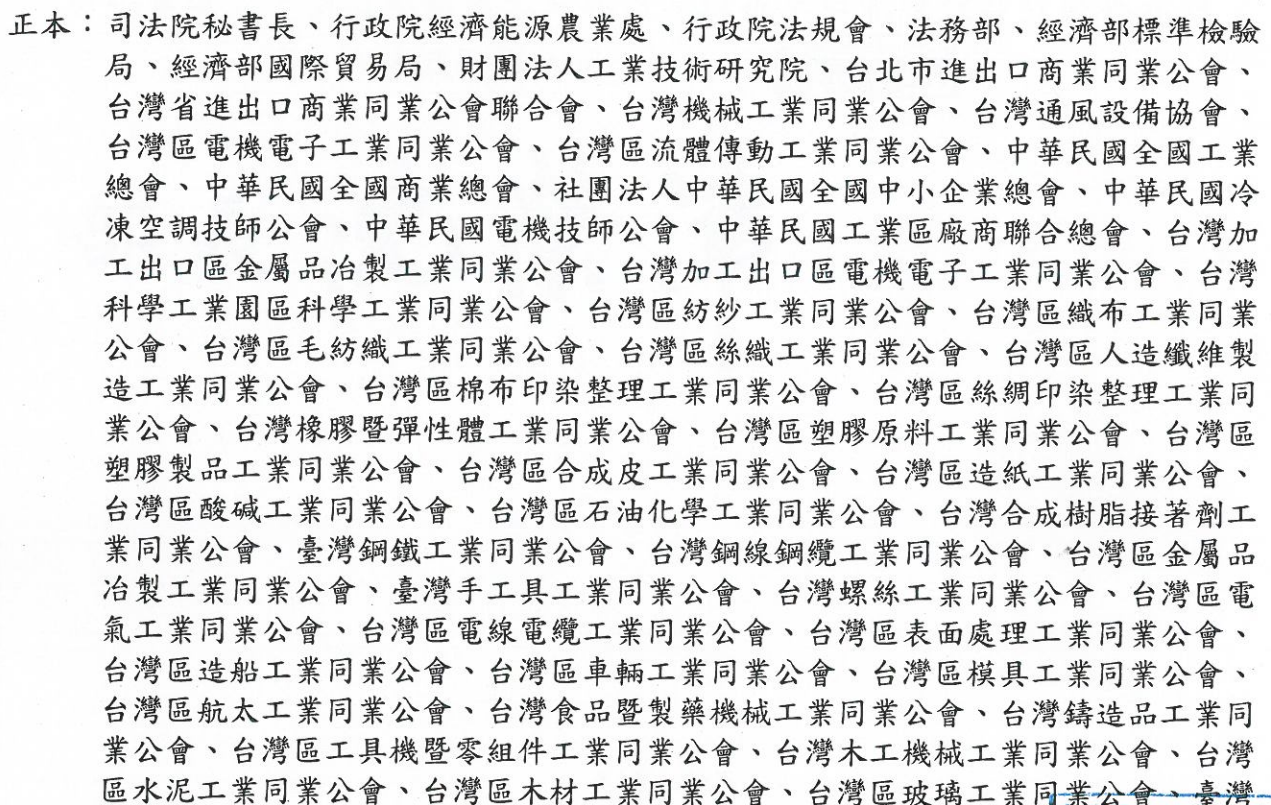 正本：司法院秘書長、行政院經濟能源農業處、行政院法規會、法務部、經濟部標準檢驗
局、經濟部國際貿易局、財團法人工業技術研究院、台北市進出口商業同業公會、
台灣省進出口商業同業公會聯合會、台灣機械工業同業公會、台灣通風設備協會、
台灣區電機電子工業同業公會、台灣區流體傳動工業同業公會、中華民國全國工業
總會、中華民國全國商業總會、社團法人中華民國全國中小企業總會、中華民國冷
凍空調技師公會、中華民國電機技師公會、中華民國工業區廠商聯合總會、台灣加
工出口區金屬品冶製工業同業公會、台灣加工出口區電機電子工業同業公會、台灣
科學工業園區科學工業同業公會、台灣區紡紗工業同業公會、台灣區織布工業同業
公會、台灣區毛紡織工業同業公會、台灣區絲織工業同業公會、台灣區人造纖維製
造工業同業公會、台灣區棉布印染整理工業同業公會、台灣區絲綢印染整理工業同
業公會、台灣橡膠暨彈性體工業同業公會、台灣區塑膠原料工業同業公會、台灣區
塑膠製品工業同業公會、台灣區合成皮工業同業公會、台灣區造紙工業同業公會、
台灣區酸碱工業同業公會、台灣區石油化學工業同業公會、台灣合成樹脂接著劑工
業同業公會、臺灣鋼鐵工業同業公會、台灣鋼線鋼纜工業同業公會、台灣區金屬品
冶製工業同業公會、臺灣手工具工業同業公會、台灣螺絲工業同業公會、台灣區電
氣工業同業公會、台灣區電線電纜工業同業公會、台灣區表面處理工業同業公會、
台灣區造船工業同業公會、台灣區車輛工業同業公會、台灣區模具工業同業公會、
台灣區航太工業同業公會、台灣食品暨製藥機械工業同業公會、台灣鑄造品工業同
業公會、台灣區工具機暨零組件工業同業公會、台灣木工機械工業同業公會、台灣
區水泥工業同業公會、台灣區木材工業同業公會、台灣區玻璃工業同業公會、臺灣